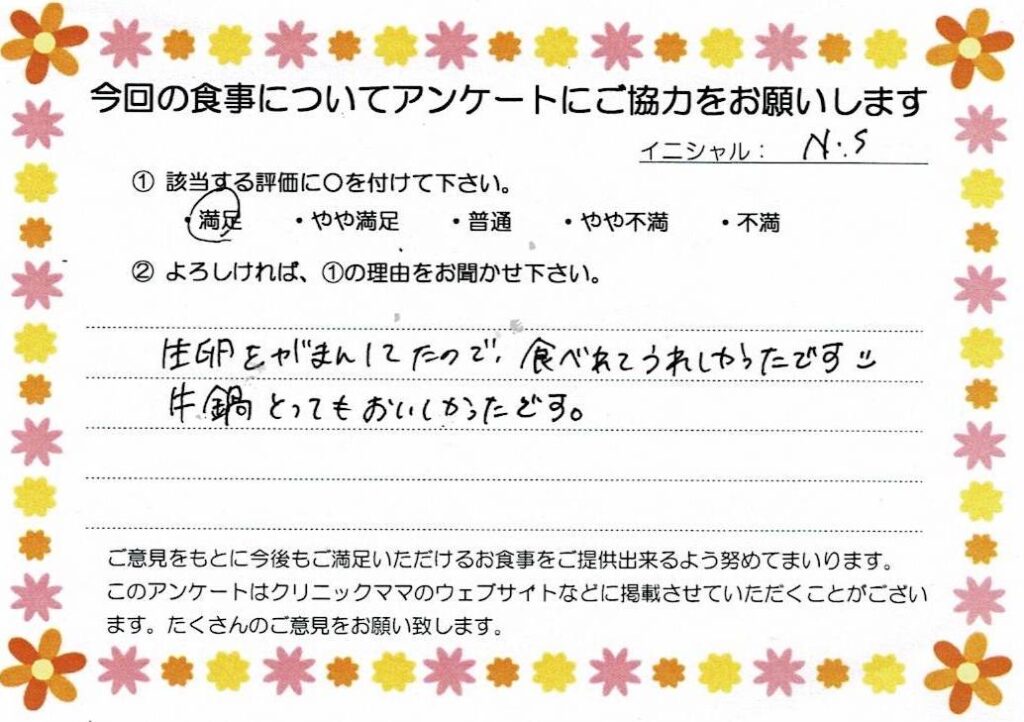 今回の食事についてアンケートにご協力をお願いします
イニシャル： N.S
① 該当する評価に〇を付けて下さい。
・満足 ・やや満足 ・普通 ・やや不満 ・不満
② よろしければ、①の理由をお聞かせ下さい。
生卵をがまんしてたので、食べれてうれしかったです
牛鍋とってもおいしかったです。
ご意見をもとに今後もご満足いただけるお食事をご提供出来るよう努めてまいります。
このアンケートはクリニックママのウェブサイトなどに掲載させていただくことがござい
ます。たくさんのご意見をお願い致します。